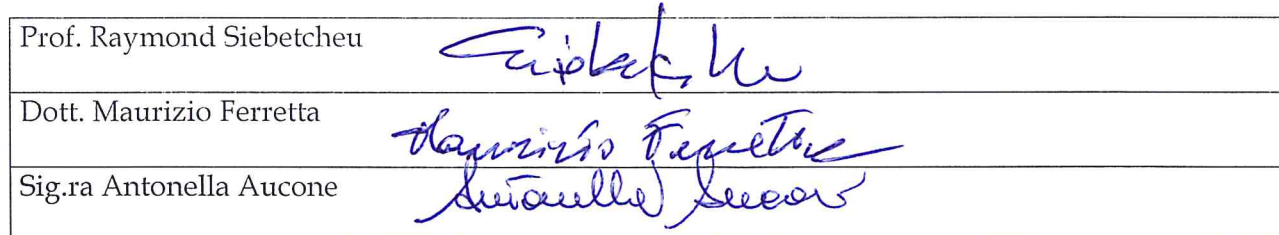 Prof. Raymond Siebetcheu Siebetcheu
Dott. Maurizio Ferretta Maurizio Ferretta
Sig.ra Antonella Aucone Antonella Aucone